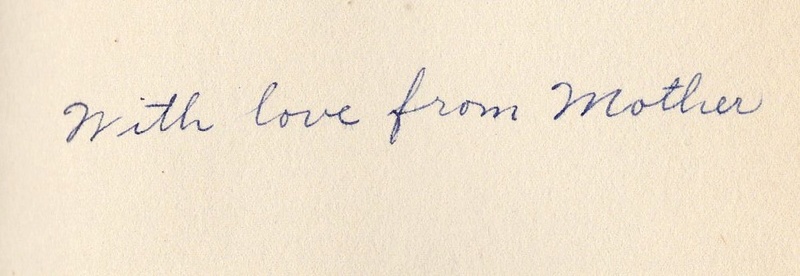 With love from Mother